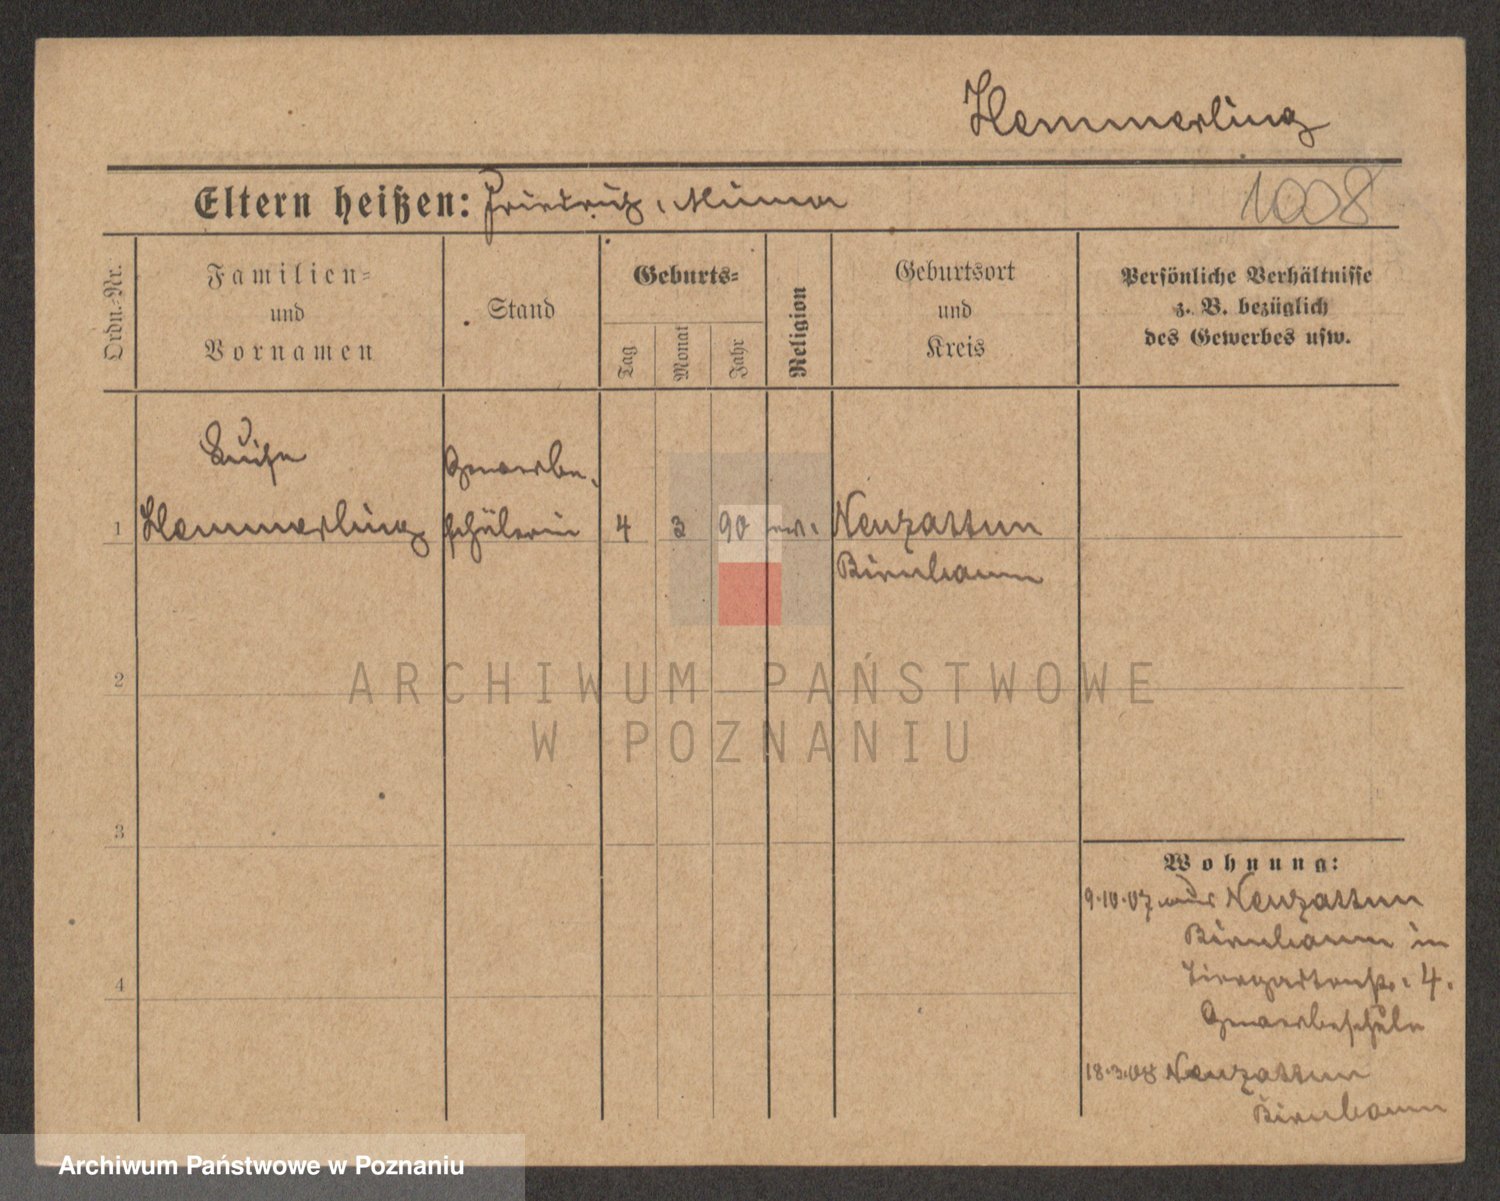 Hemmerling
Eltern heißen: Friedrich, Minna
1008
Ordn.-Nr.
Familien-
und
Vornamen
Stand
Geburts-
Tag
Monat
Jahr
Religion
Geburtsort
und
Kreis
Persönliche Verhältnisse
z. B. bezüglich
des Gewerbes usw.
Luise
Gewerbe-
1 Hemmerling schülerin 4 3 90 ev. Neuzattum
Birnbaum
2
3
4
Wohnung:
9.10.07 aus Neuzattum
Birnbaum in
Tiergartenstr. 4.
Gewerbeschule
18.3.08 Neuzattum
Birnbaum
ARCHIWUM PAŃSTWOWE
W POZNANIU
Archiwum Państwowe w Poznaniu